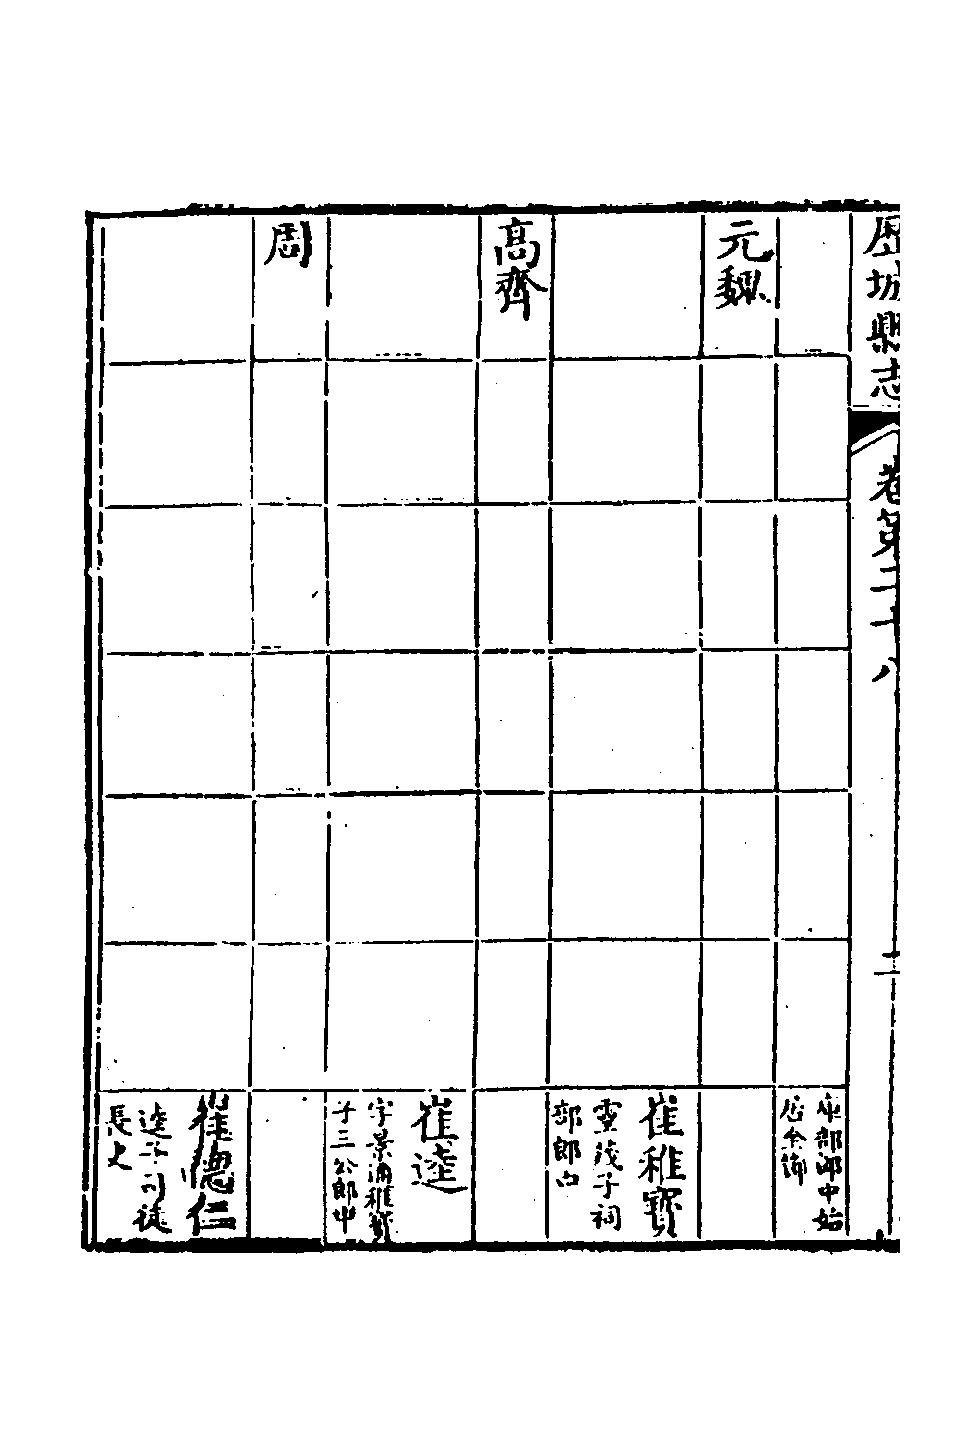 歷城縣志
卷第二十八
二
庫部郎中始
居全節
元魏
崔稚寶
靈茂子祠
部郎
高齊
崔逵
字景通稚寶
子三公郎中
周
崔德仁
逵子司徒
長史